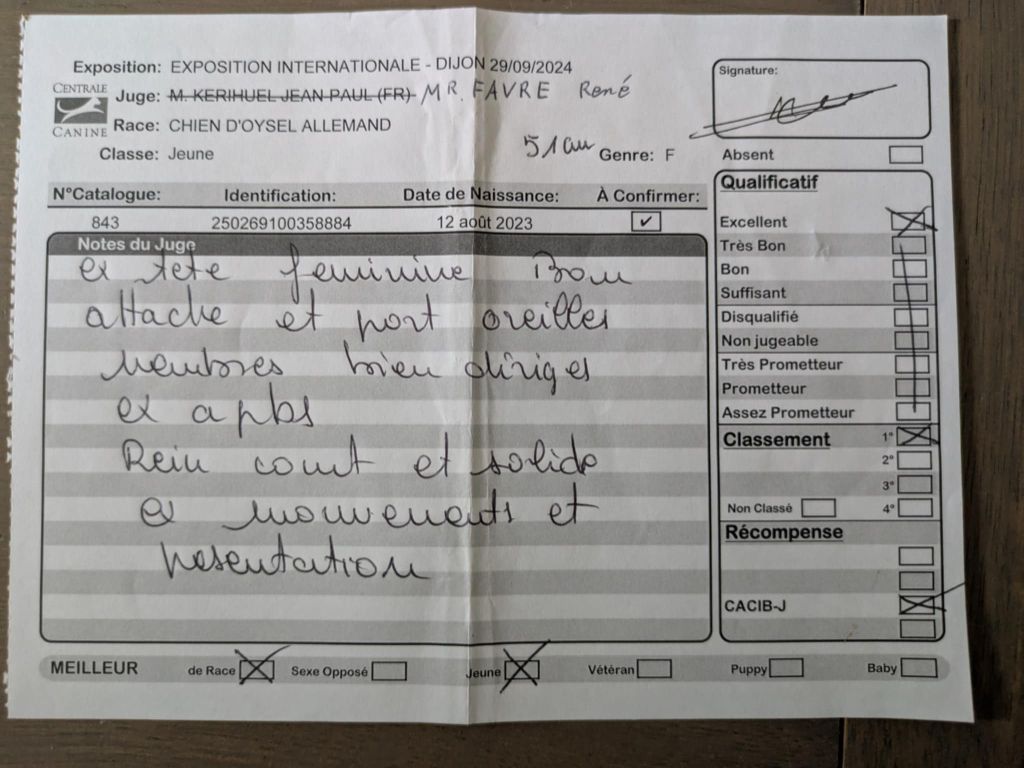 Exposition: EXPOSITION INTERNATIONALE - DIJON 29/09/2024
CENTRALE CANINE
Juge: M. KERIHUEL JEAN PAUL (FR) MR. FAVRE René
Race: CHIEN D'OYSEL ALLEMAND
Classe: Jeune 51 cm Genre: F
N°Catalogue: Identification: Date de Naissance: À Confirmer:
843 250269100358884 12 août 2023 ✔
Notes du Juge
ex tete feminine Bon
attache et port oreilles
Membres bien diriges
ex aplbs
Rein court et solide
ex mouvements et
presentation
Signature:
Absent
Qualificatif
Excellent
Très Bon
Bon
Suffisant
Disqualifié
Non jugeable
Très Prometteur
Prometteur
Assez Prometteur
Classement 1°
2°
3°
Non Classé 4°
Récompense
CACIB-J
MEILLEUR de Race Sexe Opposé Jeune Vétéran Puppy Baby